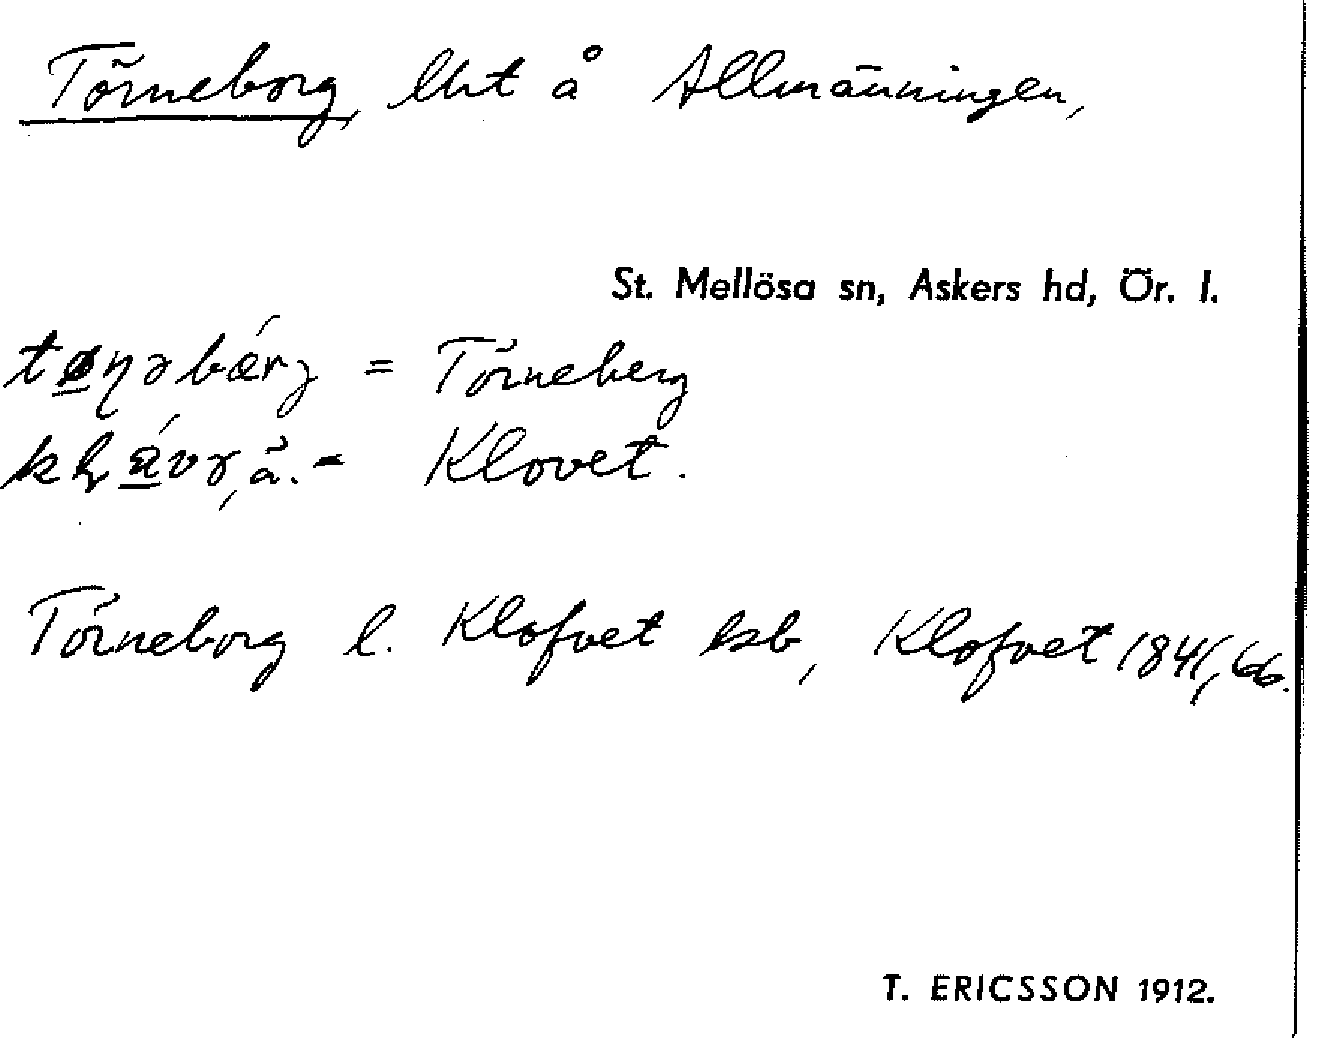 Törneborg, lht å Allmänningen,
St. Mellösa sn, Askers hd, Ör. l.
= Törneberg
å. = Klovet.
Törneborg l. Klofvet ksb, Klofvet 1841, 66.
T. ERICSSON 1912.